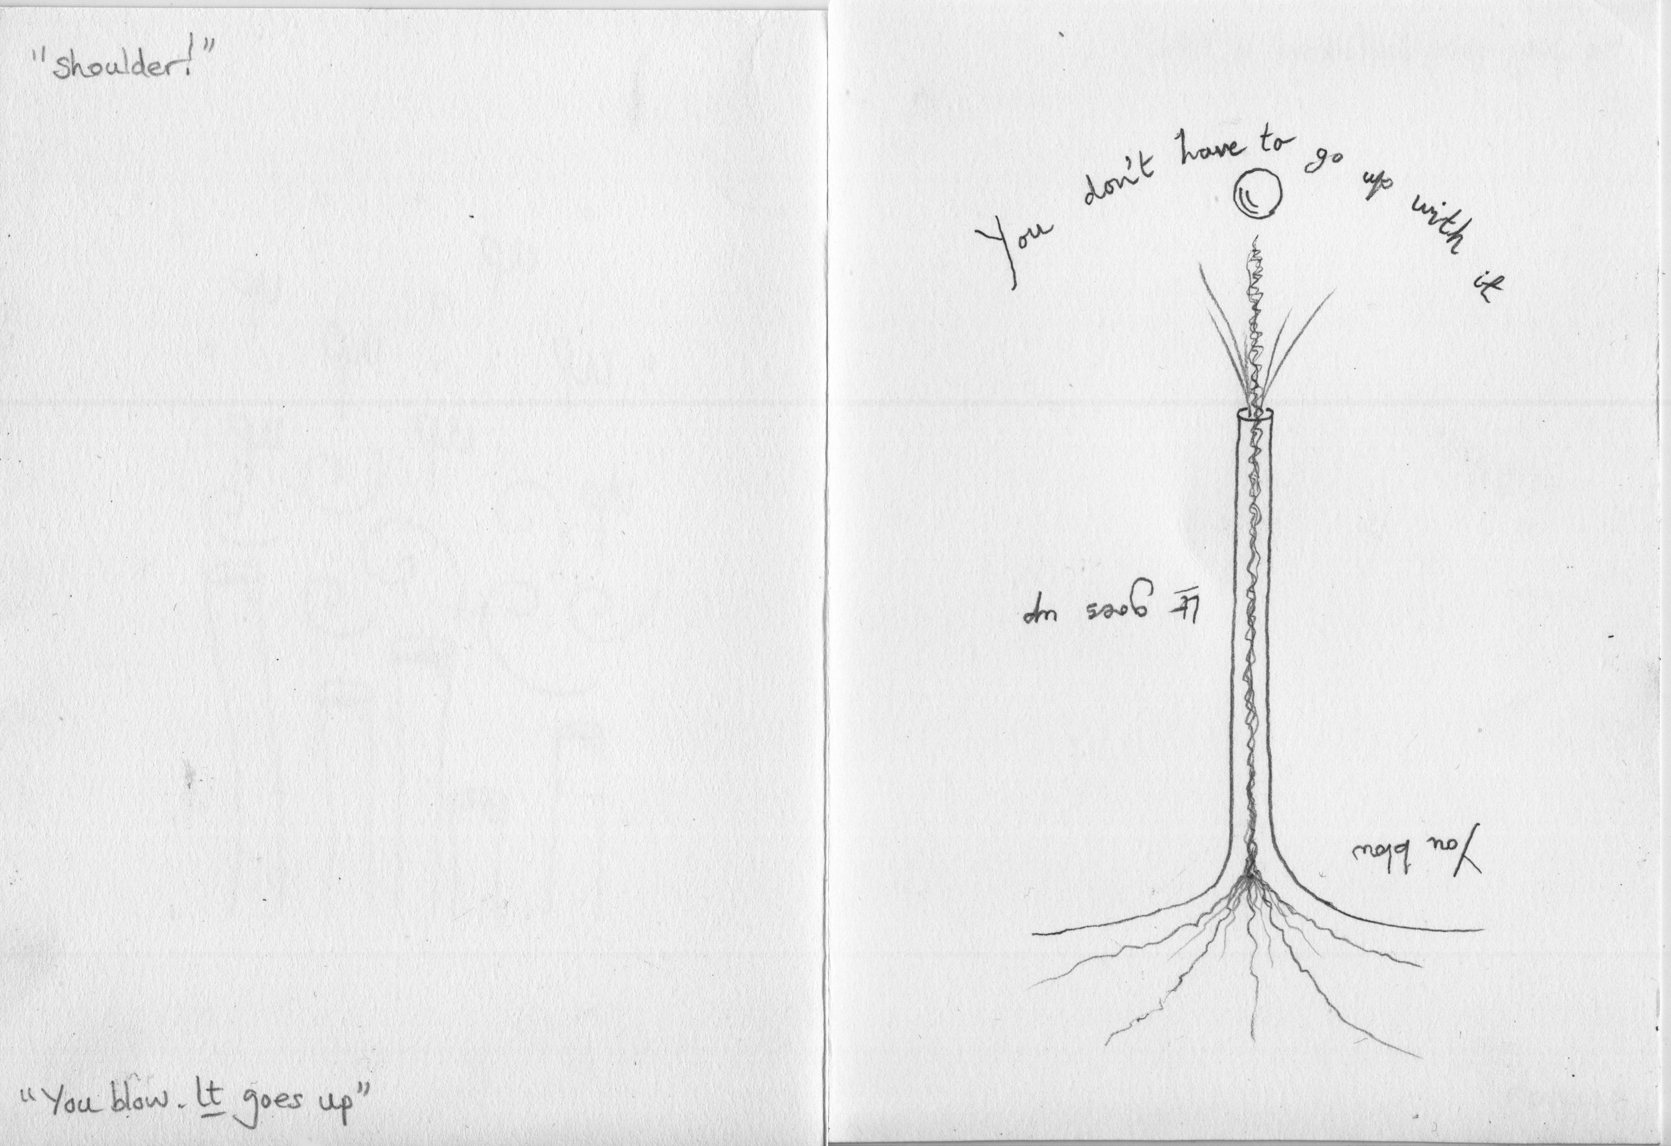 "shoulder!"
"You blow. It goes up"
You don't have to go up with it
It goes up
You blow